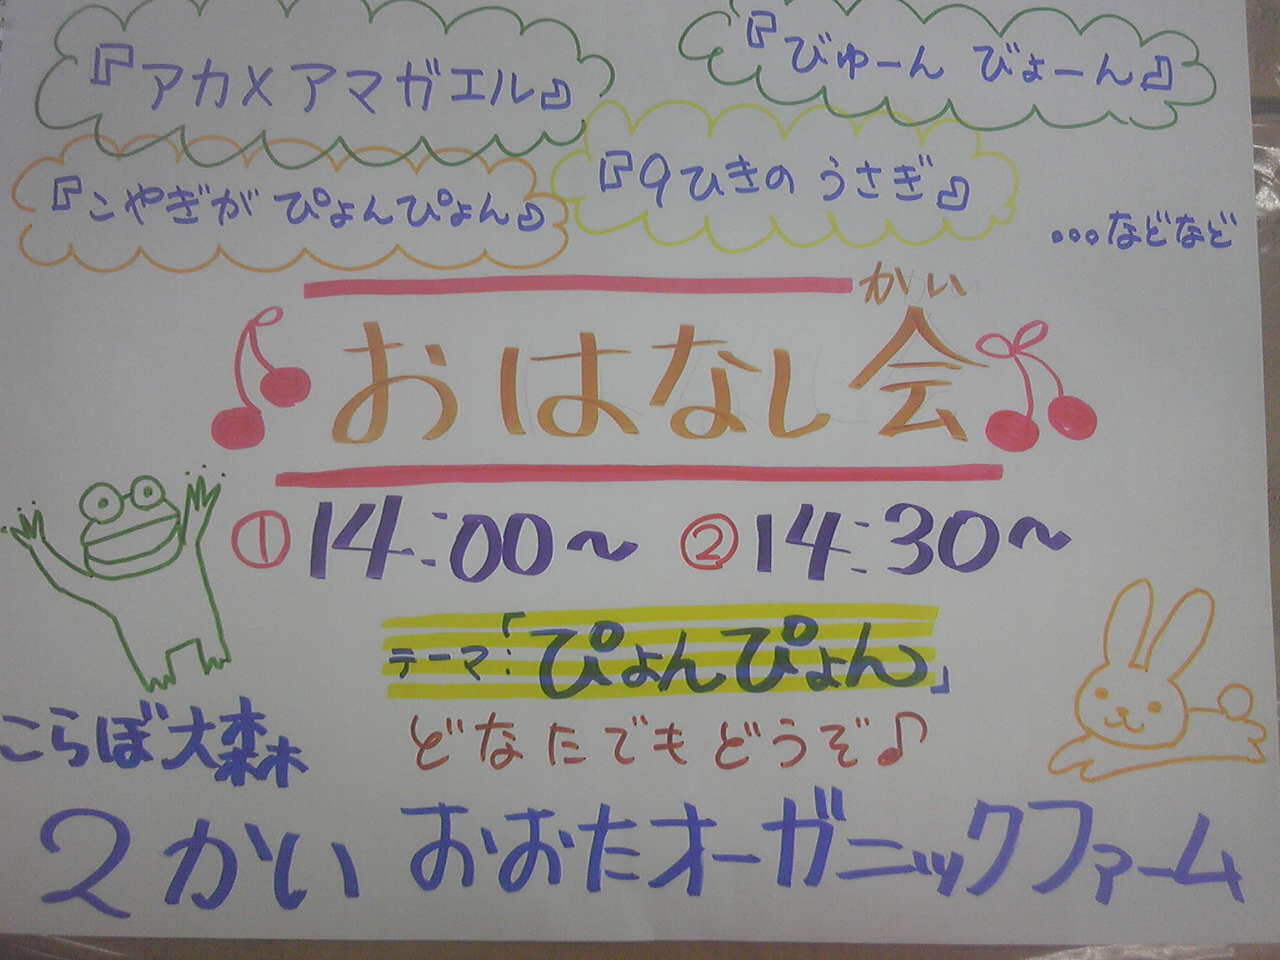 『アカメアマガエル』
『びゅーん びょーん』
『こやぎが ぴょんぴょん』
『9ひきの うさぎ』
…などなど
かい
おはなし会
①14:00～ ②14:30～
テーマ:「ぴょんぴょん」
どなたでもどうぞ♪
こらぼ大森
2かい おおたオーガニックファーム